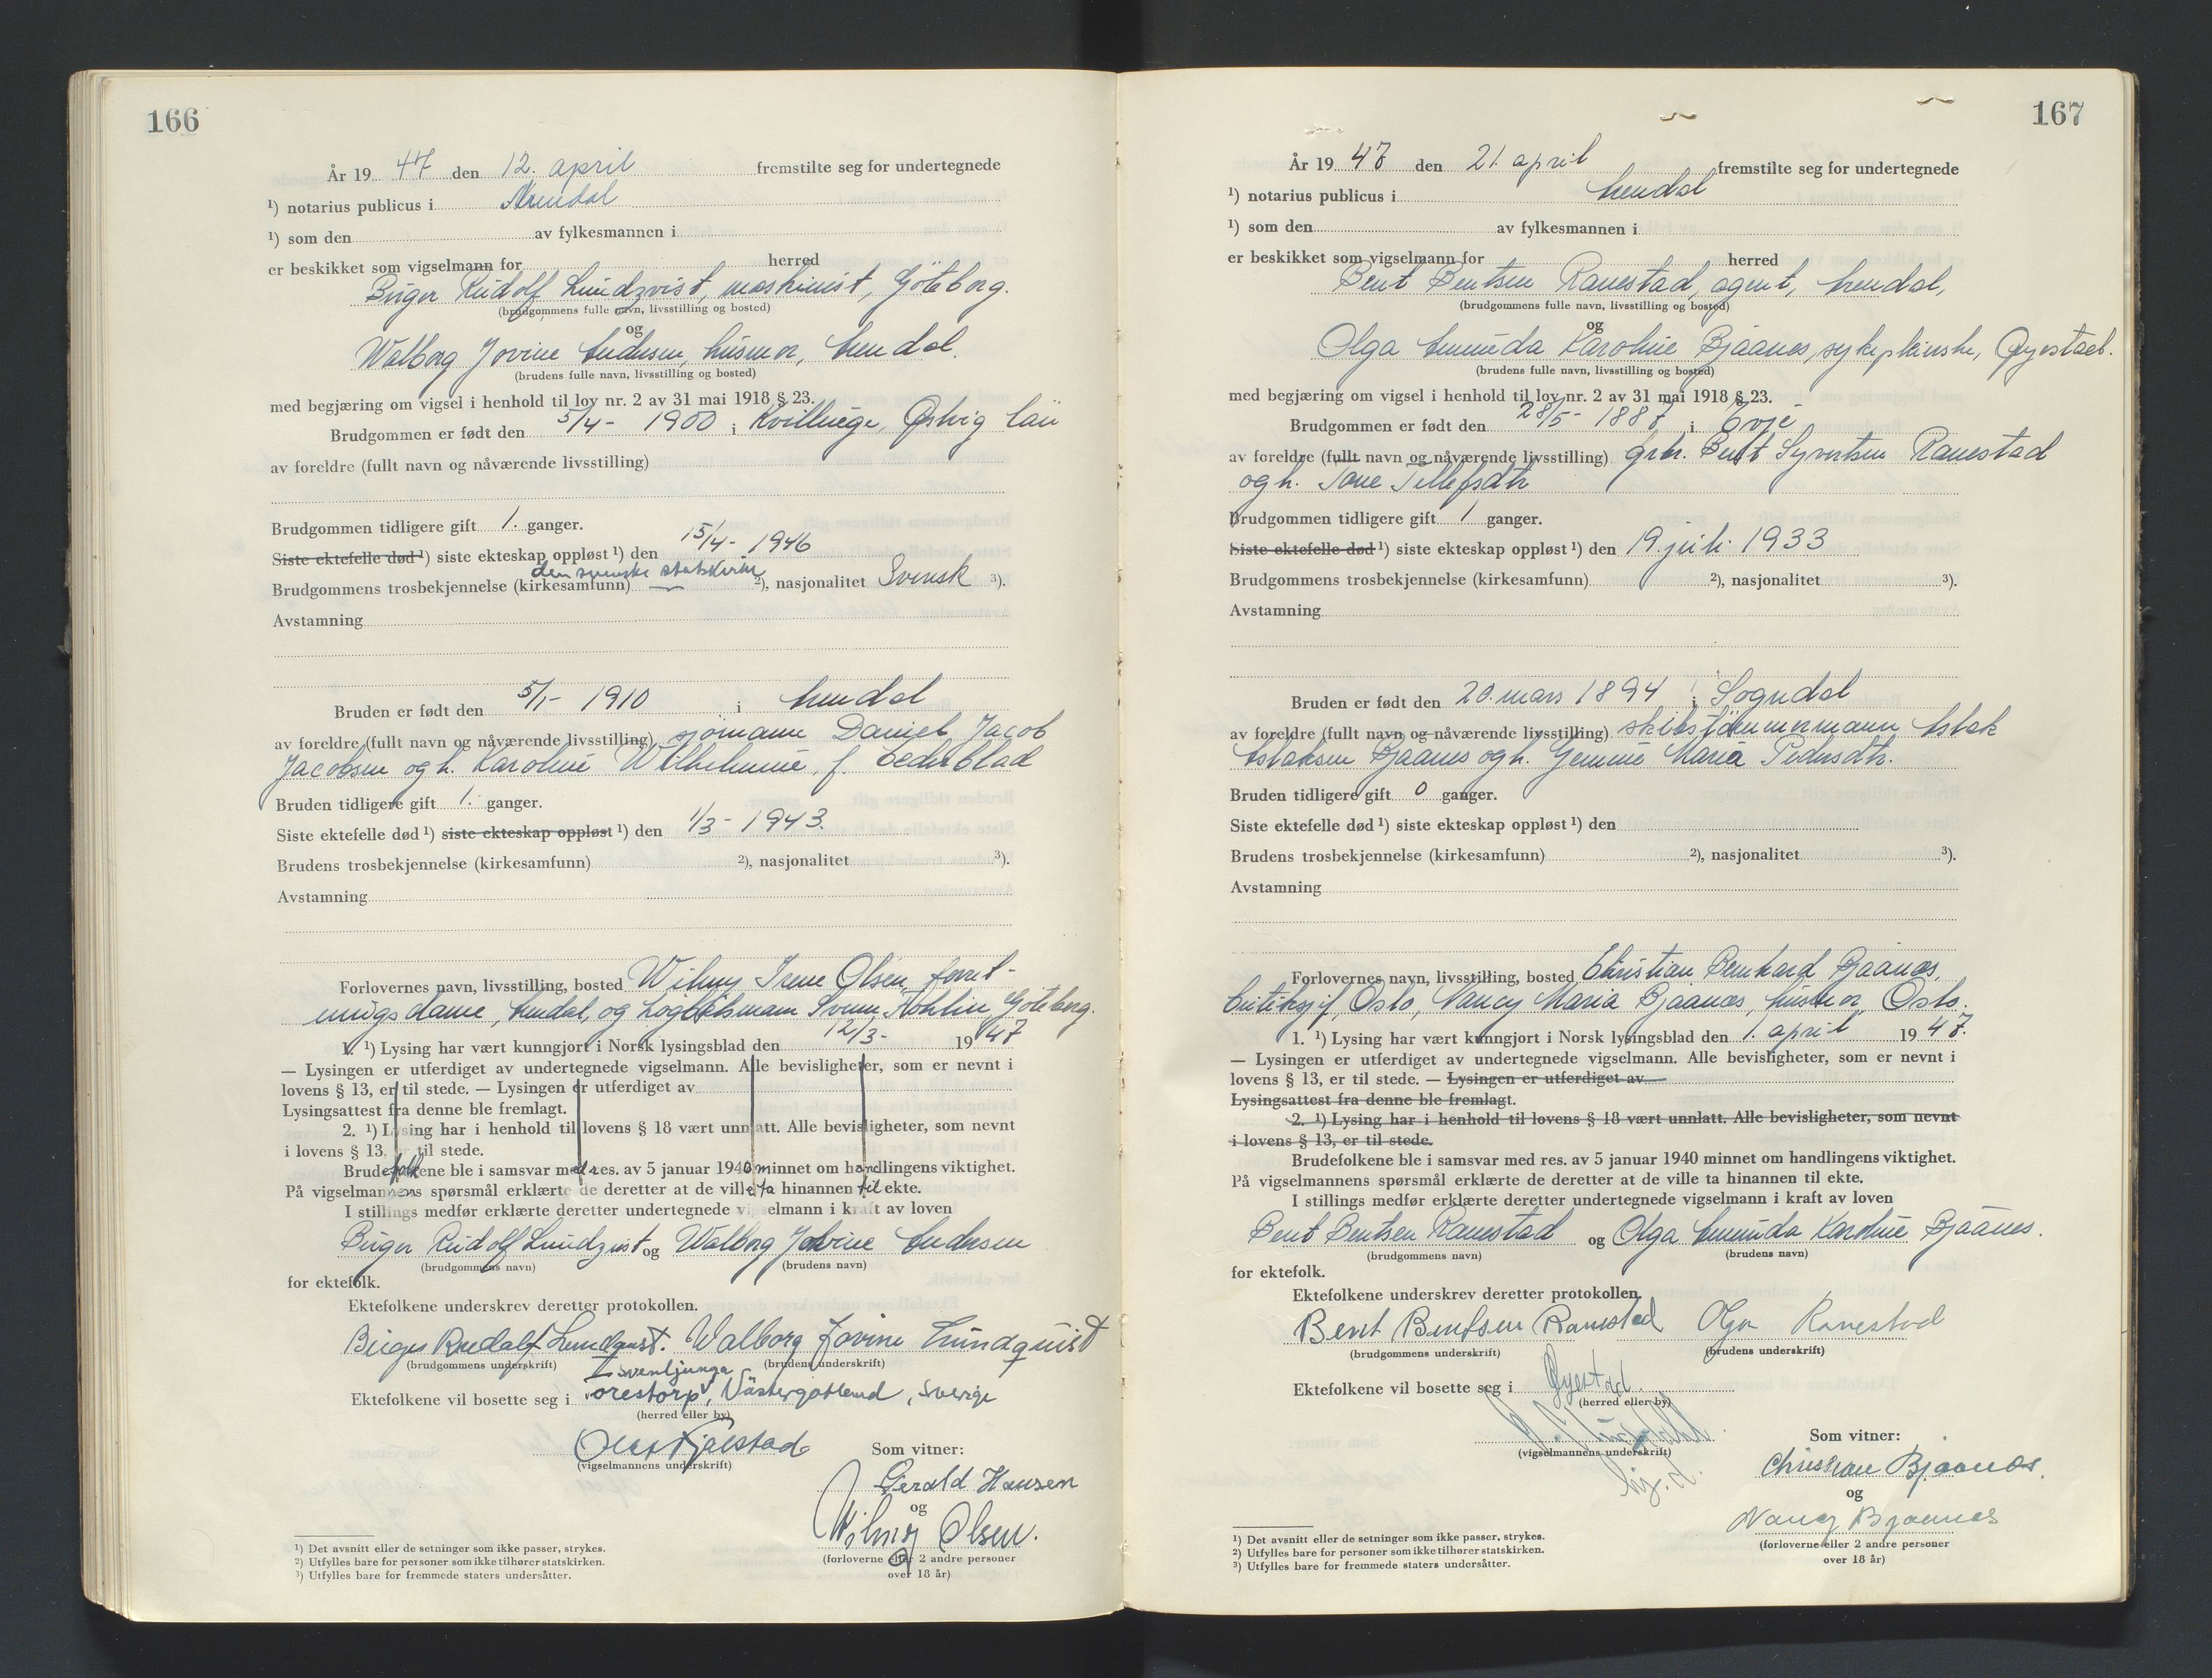 166
År 19 47 den 12. april fremstilte seg for undertegnede
¹) notarius publicus i Arendal
¹) som den av fylkesmannen i
er beskikket som vigselmann for herred
Birger Rudolf Lundqvist, maskinist, Göteborg.
(brudgommens fulle navn, livsstilling og bosted)
og
Walborg Jovine Andersen, husmor, Arendal.
(brudens fulle navn, livsstilling og bosted)
med begjæring om vigsel i henhold til lov nr. 2 av 31 mai 1918 § 23.
Brudgommen er født den 5/4- 1900 i Kvillinge, län
av foreldre (fullt navn og nåværende livsstilling)
Brudgommen tidligere gift 1. ganger.
Siste ektefelle død ¹) siste ekteskap oppløst ¹) den 15/4- 1946
den svenske statskirke
Brudgommens trosbekjennelse (kirkesamfunn) — ²), nasjonalitet Svensk ³).
Avstamning
Bruden er født den 5/1- 1910 i Arendal
av foreldre (fullt navn og nåværende livsstilling) sjömann Daniel Jacob
Jacobsen og h. Karoline Wilhelmine f. Cederblad
Bruden tidligere gift 1. ganger.
Siste ektefelle død ¹) siste ekteskap oppløst ¹) den 1/3- 1943.
Brudens trosbekjennelse (kirkesamfunn) ²), nasjonalitet ³).
Avstamning
Forlovernes navn, livsstilling, bosted Wilmy Irene Olsen, forret-
ningsdame, Arendal, og Svenn Göteborg.
1. ¹) Lysing har vært kunngjort i Norsk lysingsblad den 12/3- 19 47
— Lysingen er utferdiget av undertegnede vigselmann. Alle bevisligheter, som er nevnt i
lovens § 13, er til stede. — Lysingen er utferdiget av
Lysingsattest fra denne ble fremlagt.
2. ¹) Lysing har i henhold til lovens § 18 vært unnlatt. Alle bevisligheter, som nevnt
i lovens § 13, til stede.
Brudefolkene ble i samsvar med res. av 5 januar 1940 minnet om handlingens viktighet.
På vigselmannens spørsmål erklærte de deretter at de ville ta hinannen til ekte.
I stillings medfør erklærte deretter undertegnede vigselmann i kraft av loven
Birger Rudolf Lundqvist og Walborg Jovine Andersen
(brudgommens navn) (brudens navn)
for ektefolk.
Ektefolkene underskrev deretter protokollen.
Birger Rudolf Lundquist. Walborg Jovine Lundquist
(brudgommens underskrift) (brudens underskrift)
I Svenljunga
Ektefolkene vil bosette seg i orestorp, Västergötland, Sverige
(herred eller by)
Olaf Fjalestad Som vitner:
(vigselmannens underskrift)
Gerald Hansen
og
Wilmy Olsen.
(forloverne eller 2 andre personer
over 18 år)
¹) Det avsnitt eller de setninger som ikke passer, strykes.
²) Utfylles bare for personer som ikke tilhører statskirken.
³) Utfylles bare for fremmede staters undersåtter.
167
År 19 47 den 21. april fremstilte seg for undertegnede
¹) notarius publicus i Arendal
¹) som den av fylkesmannen i
er beskikket som vigselmann for herred
Bent Bentsen Ranestad, agent, Arendal,
(brudgommens fulle navn, livsstilling og bosted)
og
Olga Amunda Karoline Bjaanes, sykepleierske, Øyestad.
(brudens fulle navn, livsstilling og bosted)
med begjæring om vigsel i henhold til lov nr. 2 av 31 mai 1918 § 23.
Brudgommen er født den 28/5- 1887 i Evje
av foreldre (fullt navn og nåværende livsstilling) grbr. Bent Syvertsen Ranestad
og h. Tone Tellefsdtr
Brudgommen tidligere gift 1 ganger.
Siste ektefelle død ¹) siste ekteskap oppløst ¹) den 19. juli 1933
Brudgommens trosbekjennelse (kirkesamfunn) ²), nasjonalitet ³).
Avstamning
Bruden er født den 20. mars 1894 i Sogndal
av foreldre (fullt navn og nåværende livsstilling) skibstømmermann Aslak
Aslaksen Bjaanes og h. Gemine Maria Pedersdtr.
Bruden tidligere gift 0 ganger.
Siste ektefelle død ¹) siste ekteskap oppløst ¹) den
Brudens trosbekjennelse (kirkesamfunn) ²), nasjonalitet ³).
Avstamning
Forlovernes navn, livsstilling, bosted Christian Bernhard Bjaanes,
Oslo, Nancy Maria Bjaanes, husmor, Oslo.
1. ¹) Lysing har vært kunngjort i Norsk lysingsblad den 1. april 19 47.
— Lysingen er utferdiget av undertegnede vigselmann. Alle bevisligheter, som er nevnt i
lovens § 13, er til stede. — Lysingen er utferdiget av
Lysingsattest fra denne ble fremlagt.
2. ¹) Lysing har i henhold til lovens § 18 vært unnlatt. Alle bevisligheter, som nevnt
i lovens § 13, er til stede.
Brudefolkene ble i samsvar med res. av 5 januar 1940 minnet om handlingens viktighet.
På vigselmannens spørsmål erklærte de deretter at de ville ta hinannen til ekte.
I stillings medfør erklærte deretter undertegnede vigselmann i kraft av loven
Bent Bentsen Ranestad og Olga Amunda Karoline Bjaanes.
(brudgommens navn) (brudens navn)
for ektefolk.
Ektefolkene underskrev deretter protokollen.
Bent Bentsen Ranestad Olga Ranestad
(brudgommens underskrift) (brudens underskrift)
Ektefolkene vil bosette seg i Øyestad
(herred eller by)
(vigselmannens underskrift)
Som vitner:
Christian Bjaanes.
og
Nancy Bjaanes
(forloverne eller 2 andre personer
over 18 år)
¹) Det avsnitt eller de setninger som ikke passer, strykes.
²) Utfylles bare for personer som ikke tilhører statskirken.
³) Utfylles bare for fremmede staters undersåtter.